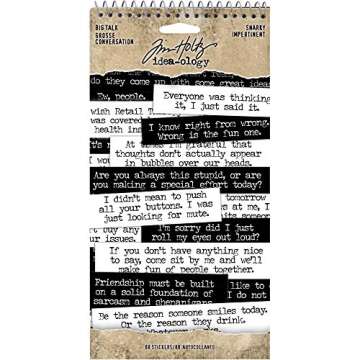 BIG TALK
GROSSE
CONVERSATION
SNARKY
IMPERTINENT
Tim Holtz
idea-ology
do they come up with some great ideas
Ew, people.
Everyone was thinking
it, I just said it.
wish Retail
was covered
health ins
I know right from wrong.
Wrong is the fun one.
At times I'm grateful that
thoughts don't actually appear
in bubbles over our heads.
Are you always this stupid, or are
you making a special effort today?
I didn't mean to push
all your buttons. I was
just looking for mute.
tomorrow
rs at me,
I'm sorry did I just
roll my eyes out loud?
t buy any
ur issues.
If you don't have anything nice
to say, come sit by me and we'll
make fun of people together.
Friendship must be built
on a solid foundation of
sarcasm and shenanigans.
like to
I do not
Be the reason someone smiles today.
Or the reason they drink.
Whatever
88 STICKERS/88 AUTOCOLLANTS